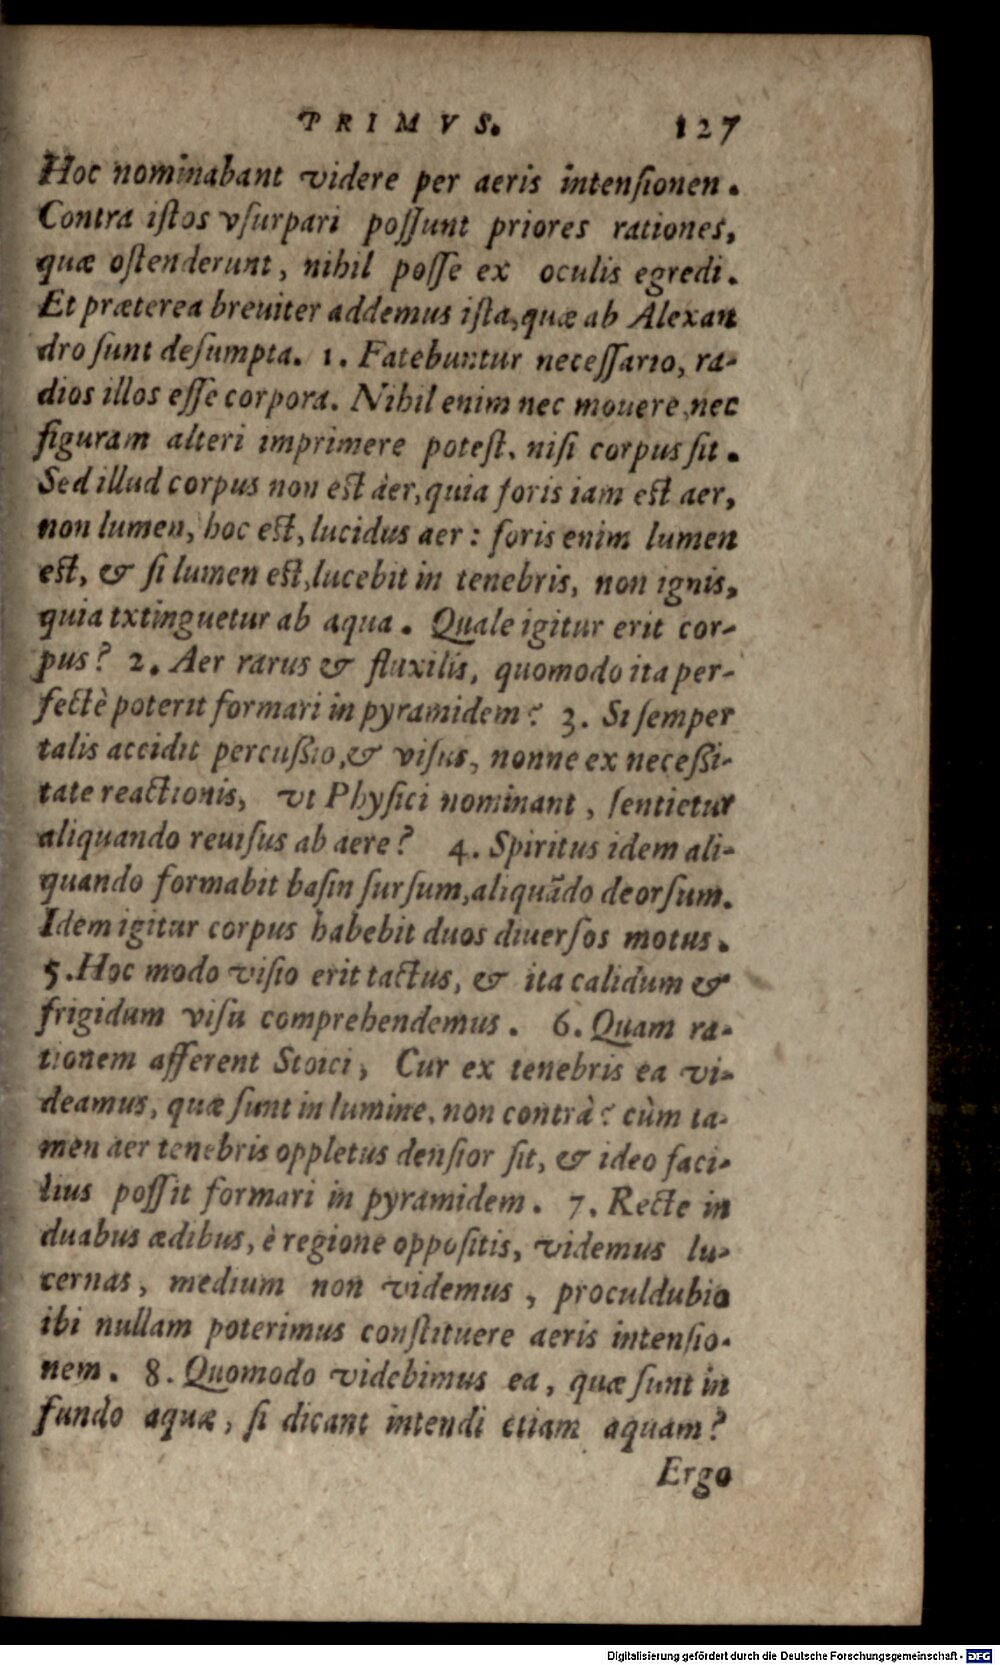 PRIMVS. 127
Hoc nominabant videre per aeris intenſionen.
Contra iſtos vſurpari poſſunt priores rationes,
quæ oſtenderunt, nihil poſſe ex oculis egredi.
Et præterea breuiter addemus iſta, quæ ab Alexan
dro ſunt deſumpta. 1. Fatebuntur neceſſario, ra-
dios illos eſſe corpora. Nihil enim nec mouere, nec
figuram alteri imprimere poteſt, niſi corpus ſit.
Sed illud corpus non eſt àer, quia foris iam eſt aer,
non lumen, hoc eſt, lucidus aer: foris enim lumen
eſt, & ſi lumen eſt, lucebit in tenebris, non ignis,
quia txtinguetur ab aqua. Quale igitur erit cor-
pus? 2. Aer rarus & fluxilis, quomodo ita per-
fectè poterit formari in pyramidem? 3. Si ſemper
talis accidit percuſſio, & viſus, nonne ex neceſſi-
tate reactionis, vt Phyſici nominant, ſentietur
aliquando reuiſus ab aere? 4. Spiritus idem ali-
quando formabit baſin ſurſum, aliquãdo deorſum.
Idem igitur corpus habebit duos diuerſos motus.
5. Hoc modo viſio erit tactus, & ita calidum &
frigidum viſu comprehendemus. 6. Quam ra-
tionem afferent Stoici, Cur ex tenebris ea vi-
deamus, quæ ſunt in lumine, non contrà? cùm ta-
men aer tenebris oppletus denſior ſit, & ideo faci-
lius poſſit formari in pyramidem. 7. Recte in
duabus ædibus, è regione oppoſitis, videmus lu-
cernas, medium non videmus, proculdubio
ibi nullam poterimus conſtituere aeris intenſio-
nem. 8. Quomodo videbimus ea, quæ ſunt in
fundo aquæ, ſi dicant intendi etiam aquam?
Ergo
Digitalisierung gefördert durch die Deutsche Forschungsgemeinschaft - DFG